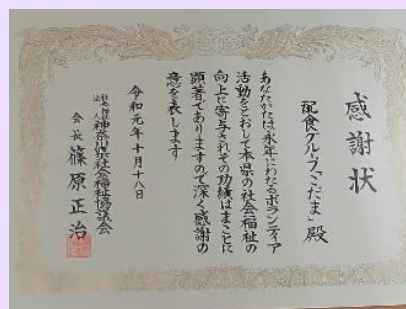 感謝状
配食グループ「こだま」殿
あなたがたは永年にわたるボランティア
活動をとおして本県の社会福祉の
向上に寄与されその功績はまことに
顕著でありますので深く感謝の
意を表します
令和元年十月十八日
社会福祉法人神奈川県社会福祉協議会
会長 篠原正治